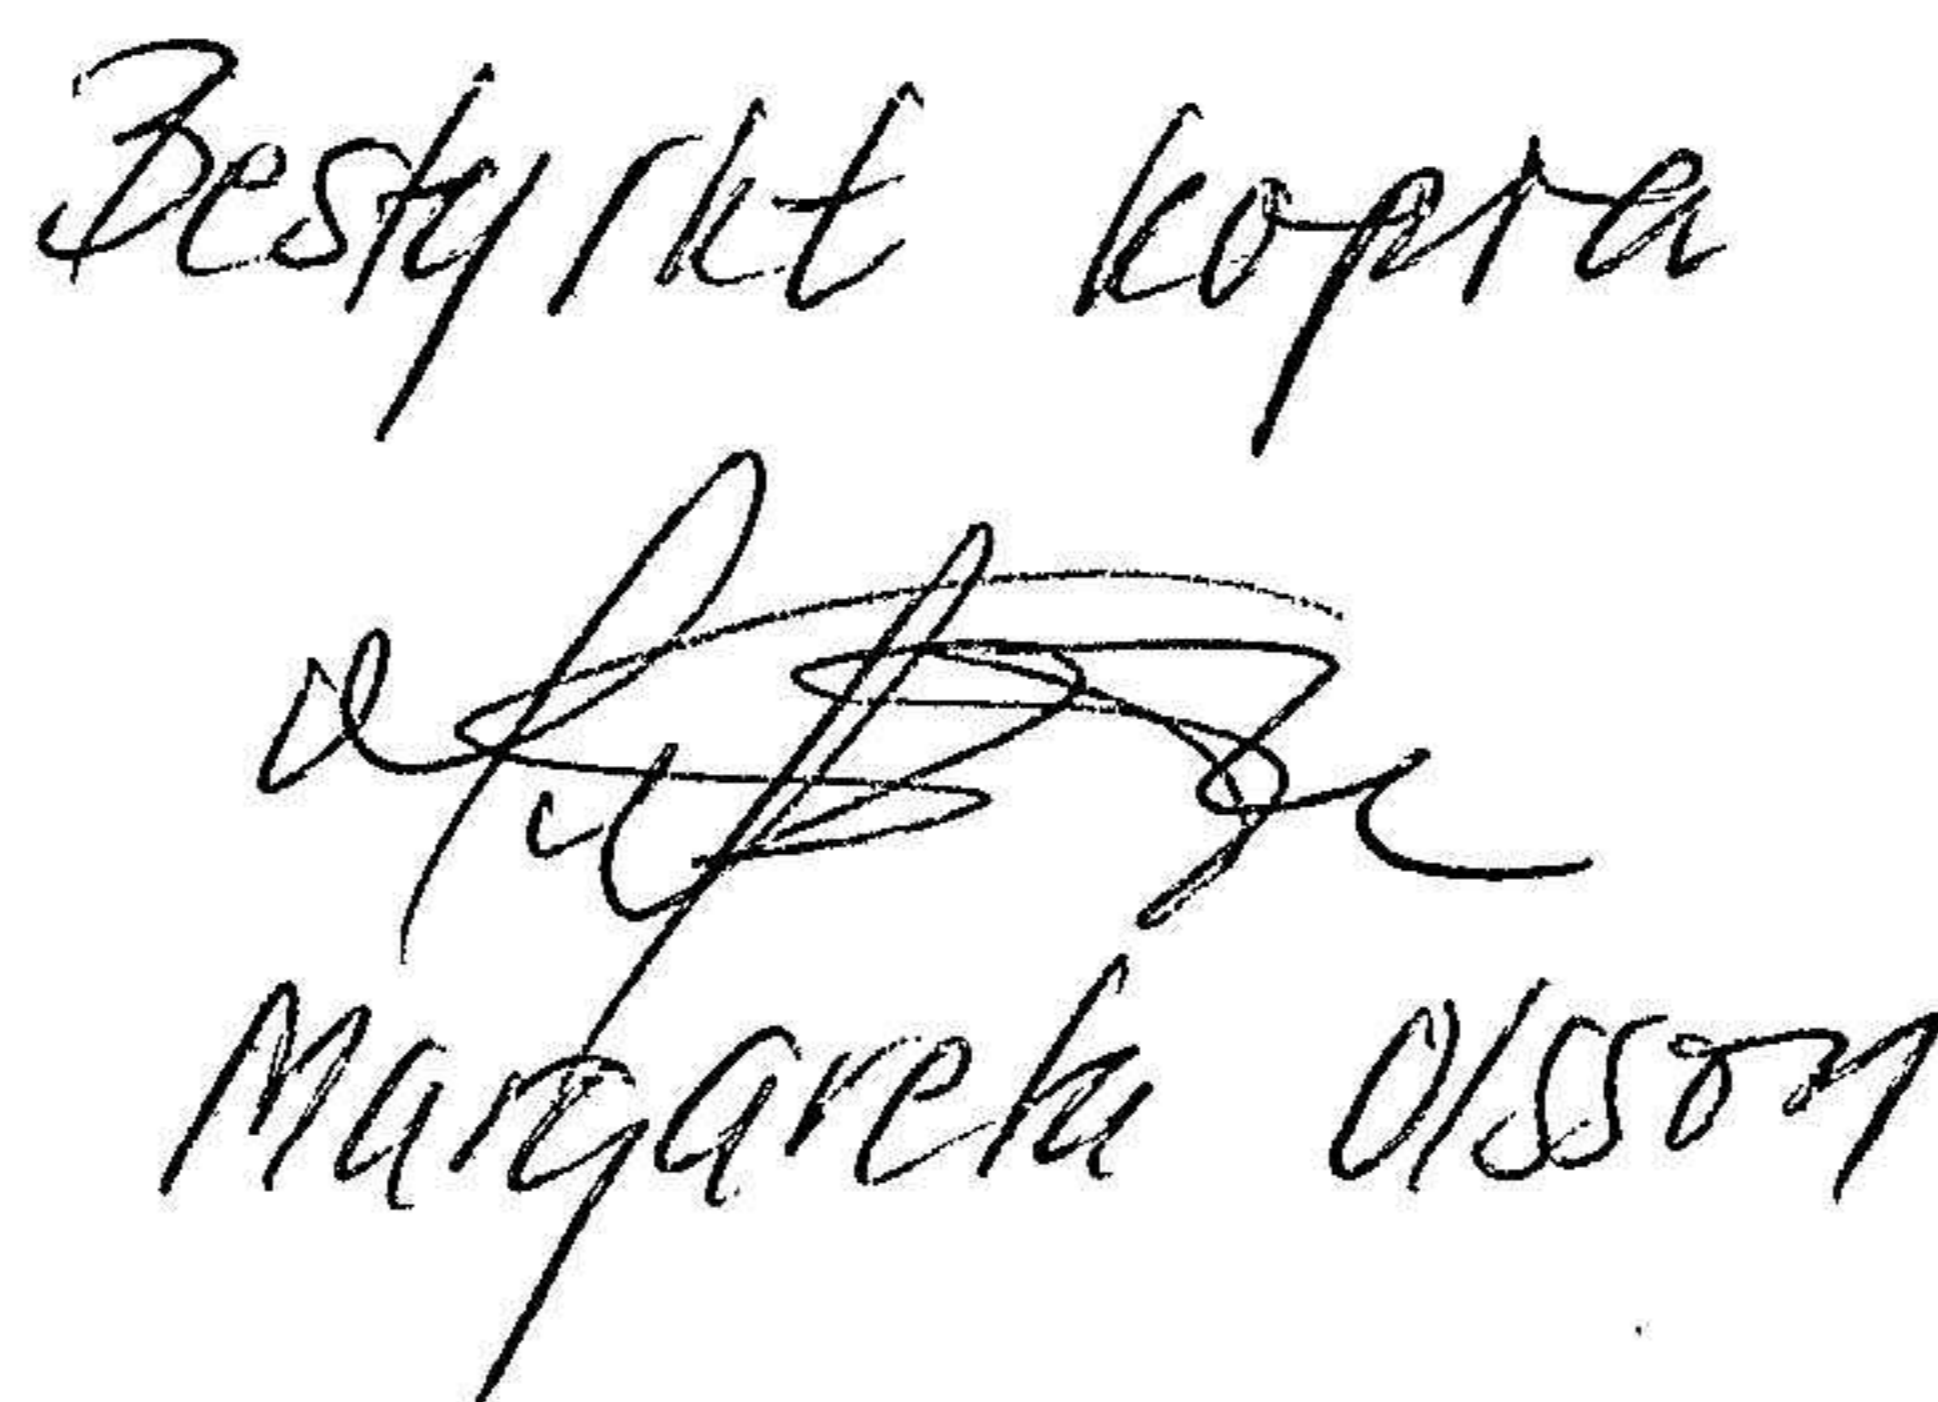 Bestyrkt kopia
Margareta Olsson